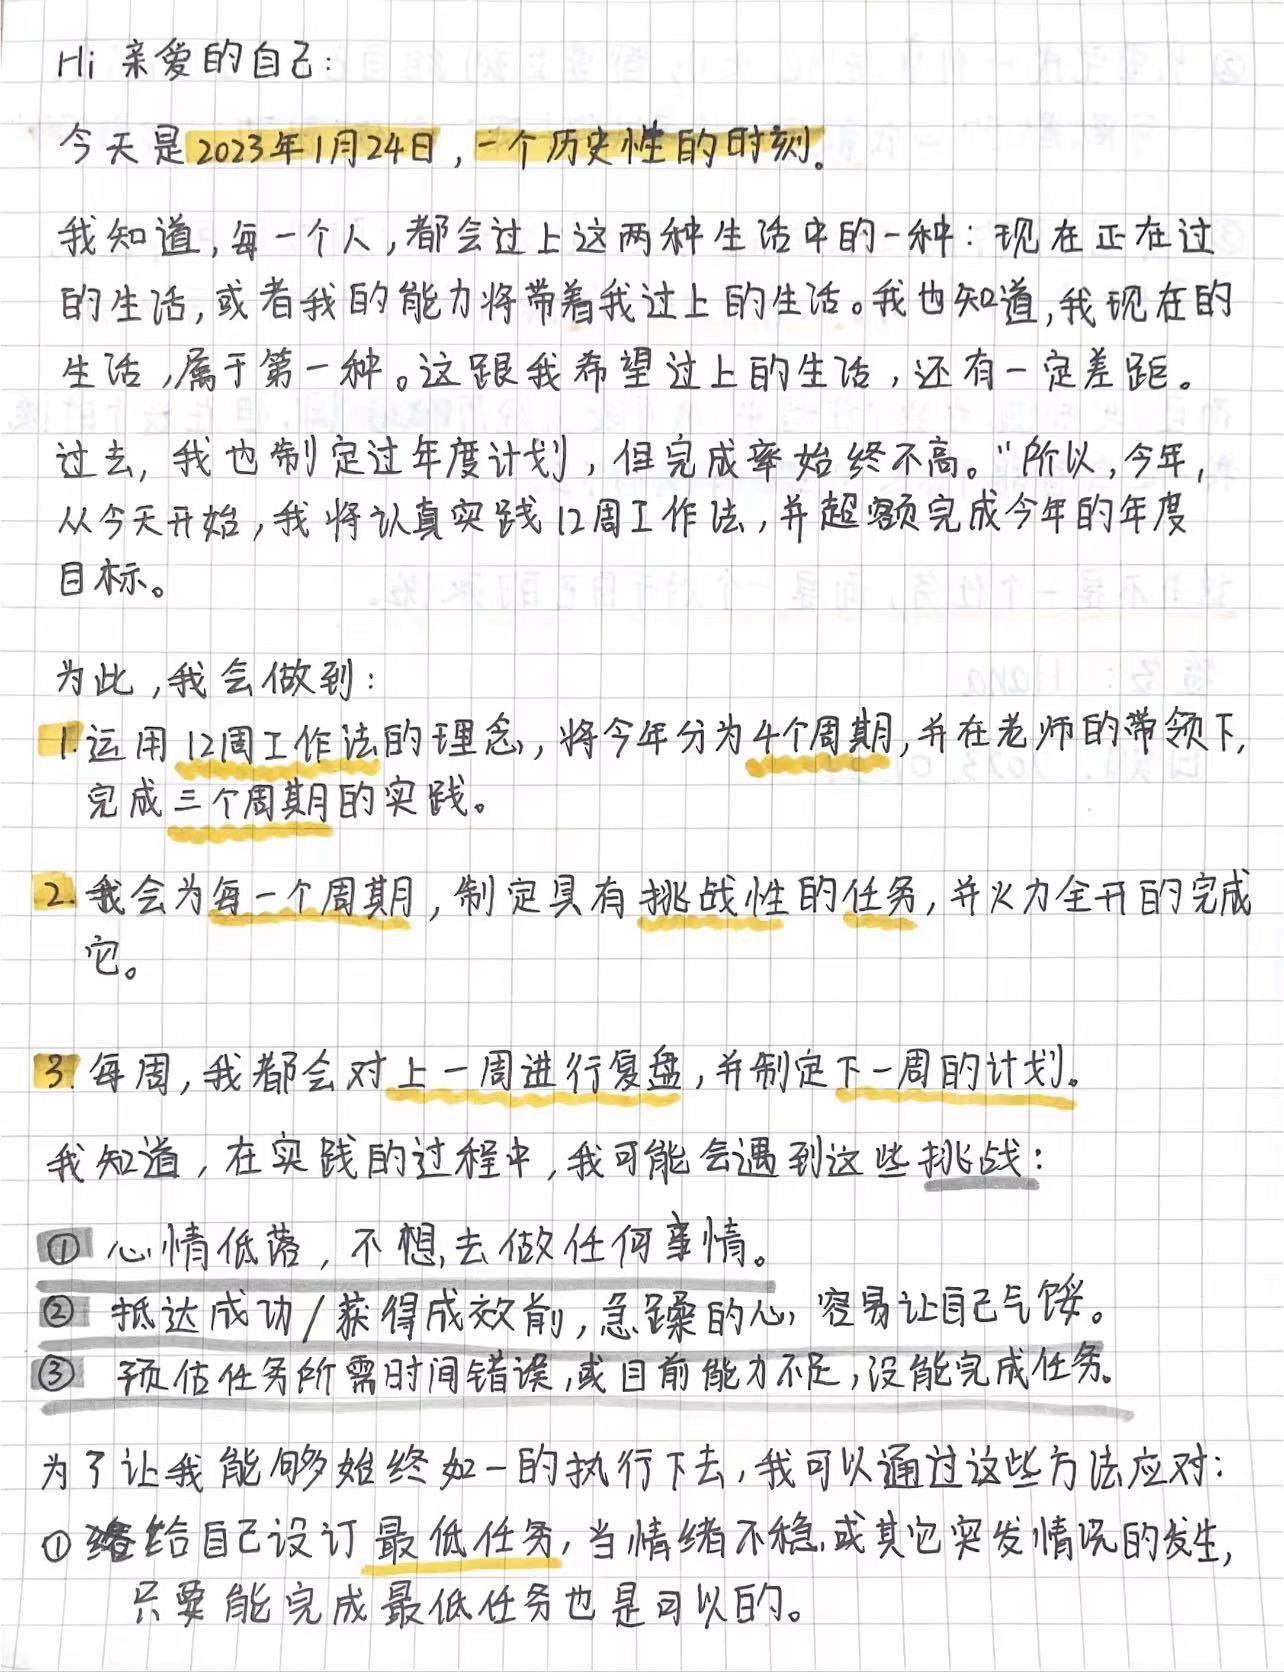 Hi 亲爱的自己：
今天是2023年1月24日，一个历史性的时刻。
我知道，每一个人，都会过上这两种生活中的一种：现在正在过
的生活，或者我的能力将带着我过上的生活。我也知道，我现在的
生活，属于第一种。这跟我希望过上的生活，还有一定差距。
过去，我也制定过年度计划，但完成率始终不高。"所以，今年，
从今天开始，我将认真实践12周工作法，并超额完成今年的年度
目标。
为此，我会做到：
1. 运用12周工作法的理念，将今年分为4个周期，并在老师的带领下，
完成三个周期的实践。
2. 我会为每一个周期，制定具有挑战性的任务，并火力全开的完成
它。
3. 每周，我都会对上一周进行复盘，并制定下一周的计划。
我知道，在实践的过程中，我可能会遇到这些挑战：
① 心情低落，不想去做任何事情。
② 抵达成功/获得成效前，急躁的心，容易让自己气馁。
③ 预估任务所需时间错误，或目前能力不足，没能完成任务。
为了让我能够始终如一的执行下去，我可以通过这些方法应对：
① 给自己设订最低任务，当情绪不稳或其它突发情况的发生，
只要能完成最低任务也是可以的。